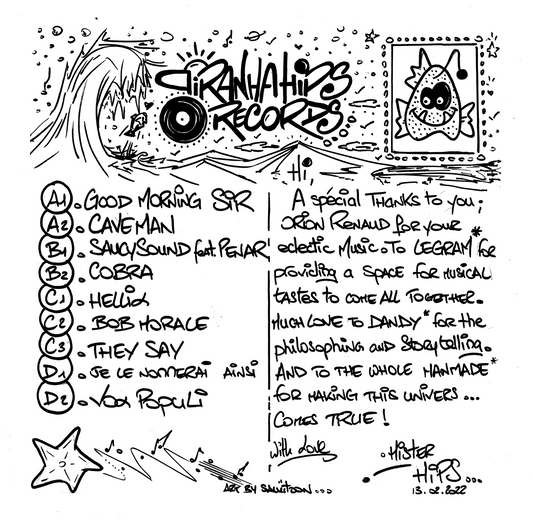 PIRANHAHIPS
RECORDS
A1. GOOD MORNING SIR
A2. CAVEMAN
B1. SAUCYSOUND feat PENAR
B2. COBRA
C1. HELLIA
C2. BOB MORALE
C3. THEY SAY
D1. JE LE NOMMERAI AINSI
D2. VOX POPULI
Hi,
A spécial THANKS to you;
ORION RENAUD for your
eclectic Music. To LEGRAM* for
providing a SPACE FOR MUSICAL
TASTES to COME ALL TOGETHER.
MUCH LOVE TO DANDY* for the
philosophing and Storytelling.
AND TO THE WHOLE MANMADE*
for MAKING THIS UNIVERS ...
COMES TRUE !
With Love
. Mister
HiPS...
13.02.2022